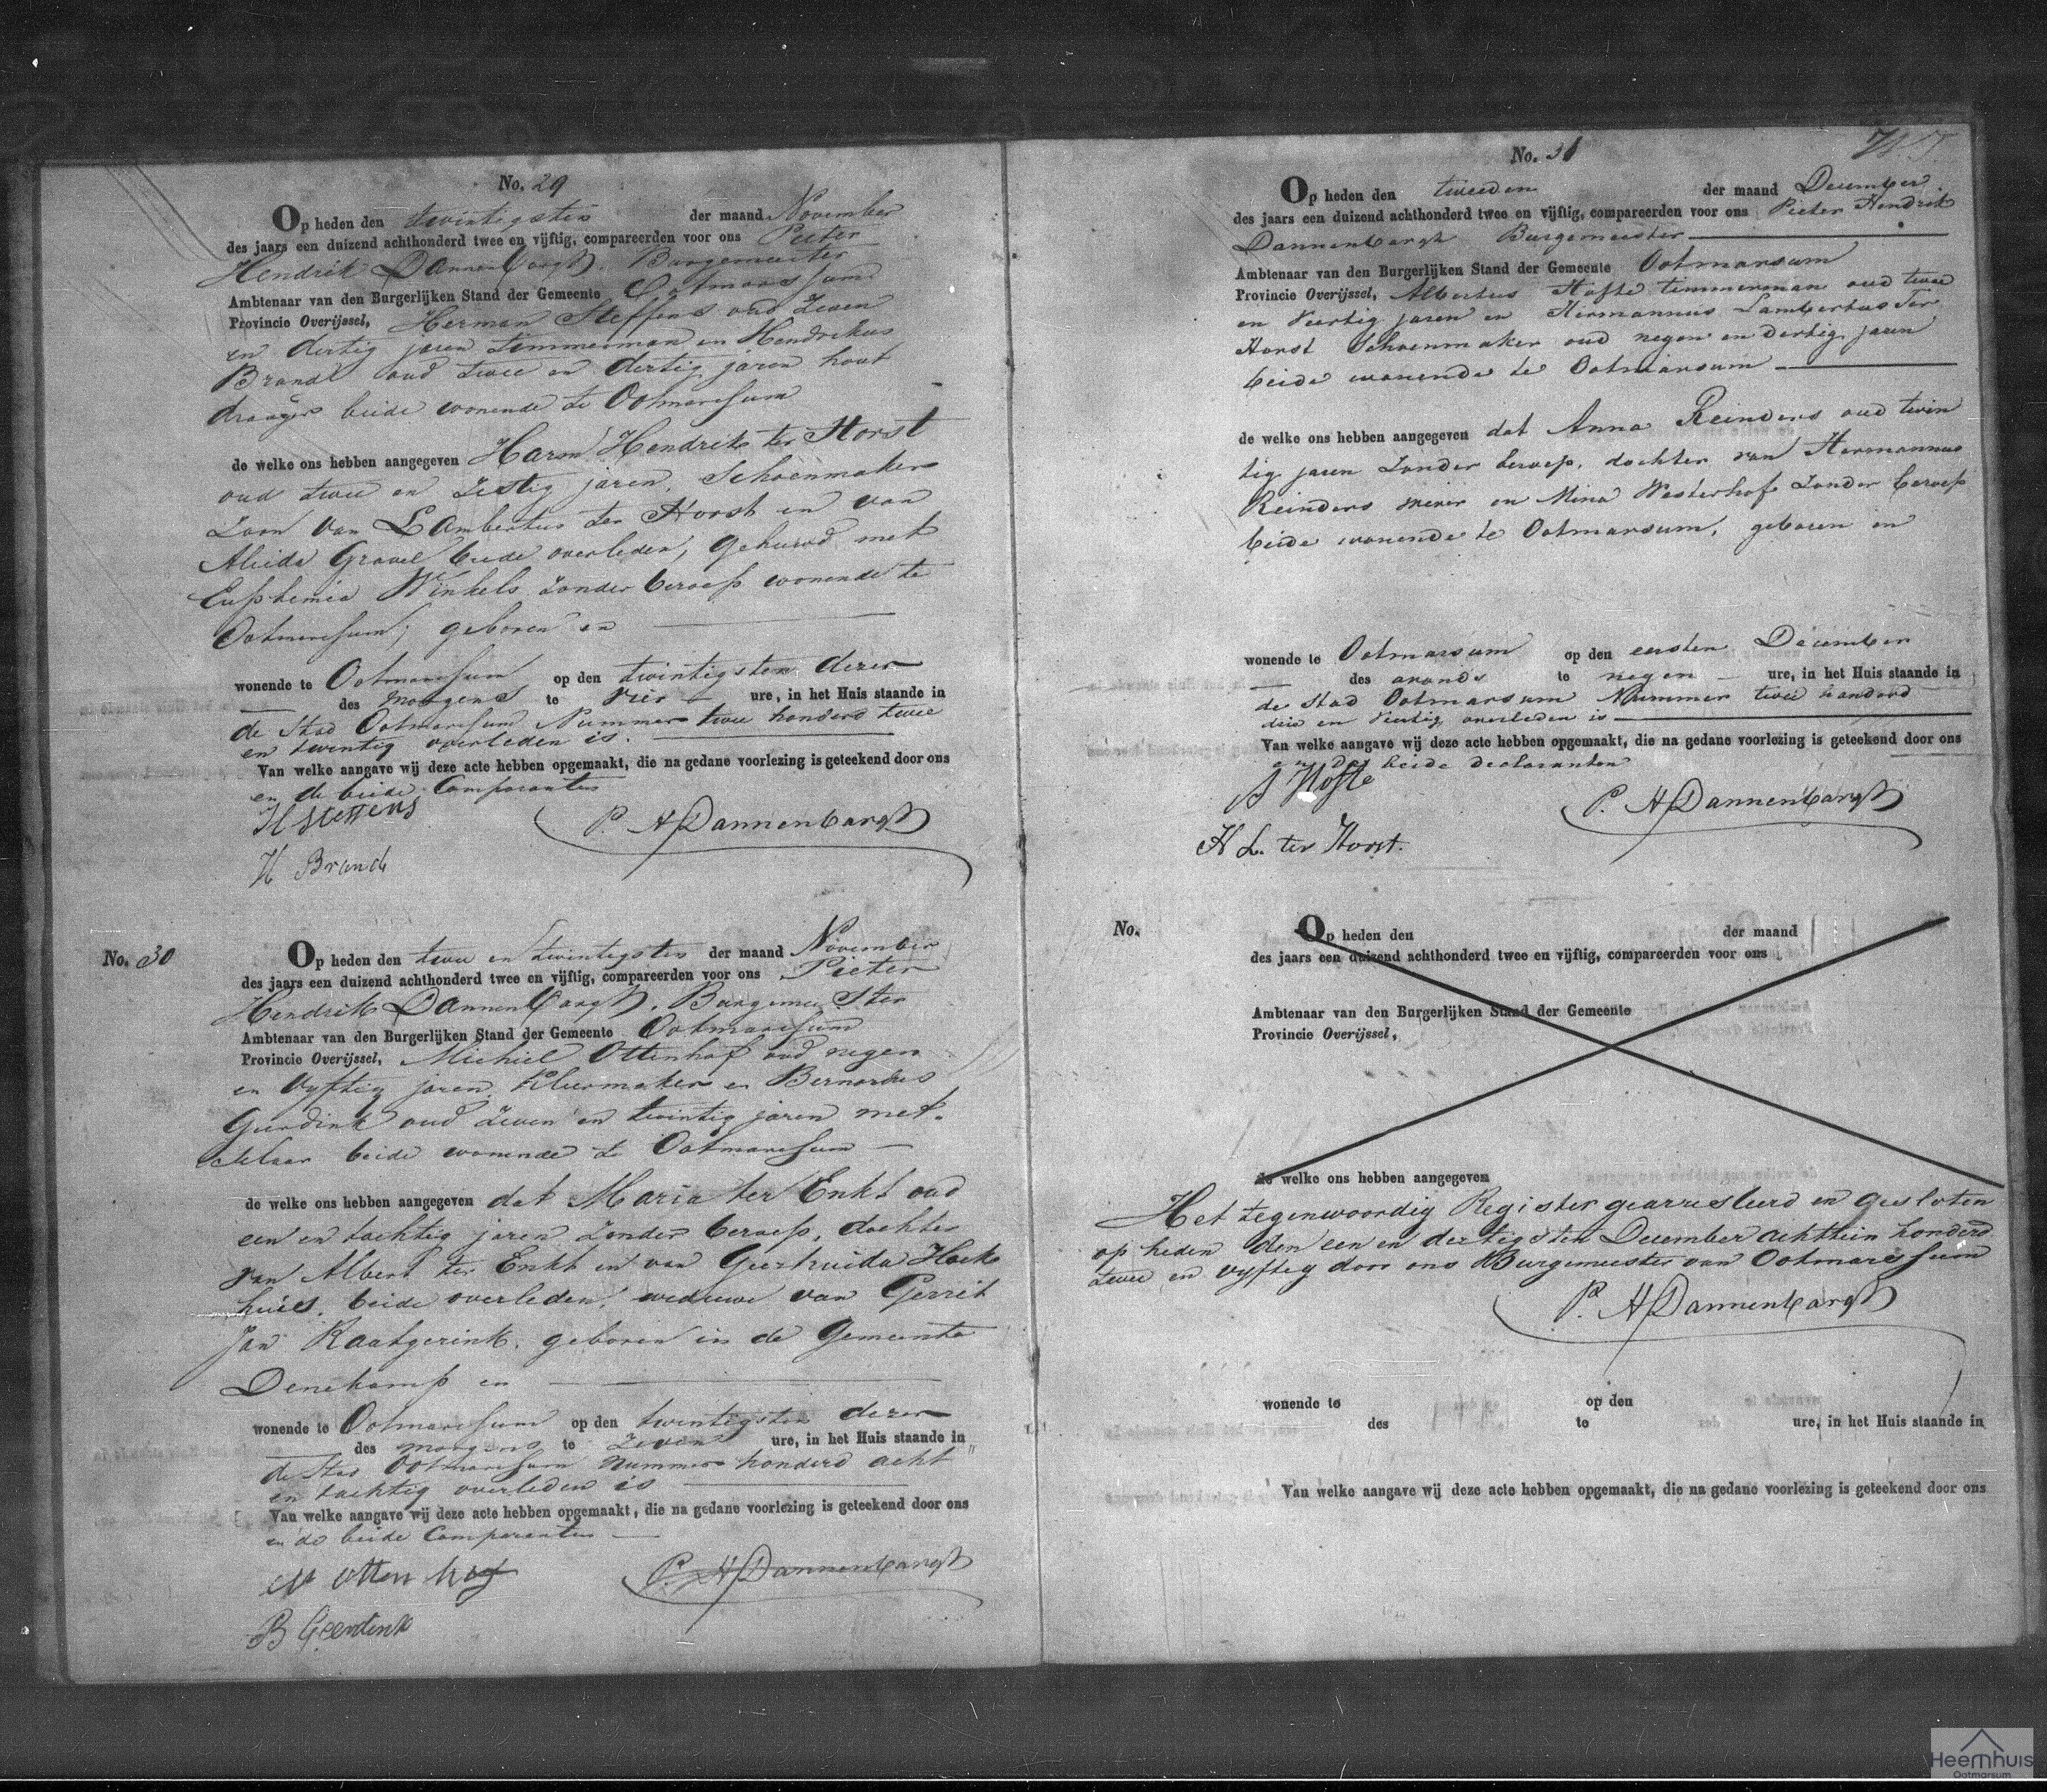 No. 29
Op heden den twintigsten der maand November
des jaars een duizend achthonderd twee en vijftig, compareerden voor ons Pieter
Hendrik Dannenbargh, Burgemeester
Ambtenaar van den Burgerlijken Stand der Gemeente Ootmarssum
Provincie Overijssel, Herman Steffens oud zeven
en dertig jaren timmerman en Hendrikus
Brand oud twee en dertig jaren hout
drager beide wonende te Ootmarssum
de welke ons hebben aangegeven Harm Hendrik ter Horst
oud twee en zestig jaren, Schoenmaker
Zoon van Lambertus ter Horst en van
Aleida Gravel beide overleden, gehuwd met
Euphemia Winkels zonder beroep wonende te
Ootmarssum, geboren en
wonende te Ootmarssum op den twintigsten dezer
des morgens te vier ure, in het Huis staande in
de Stad Ootmarssum Nummer twee honderd twee
en twintig overleden is.
Van welke aangave wij deze acte hebben opgemaakt, die na gedane voorlezing is geteekend door ons
en de beide Comparanten
H Steffens
P. H Dannenbargh
H Brand
No. 30
Op heden den twee en twintigsten der maand November
des jaars een duizend achthonderd twee en vijftig, compareerden voor ons Pieter
Hendrik Dannenbargh, Burgemeester
Ambtenaar van den Burgerlijken Stand der Gemeente Ootmarssum
Provincie Overijssel, Michiel Ottenhof oud negen
en vyftig jaren, Kleermaker en Bernardus
Geerdink oud zeven en twintig jaren met
selaar beide wonende te Ootmarssum
de welke ons hebben aangegeven dat Maria ter Enkt oud
een en tachtig jaren zonder beroep, dochter
van Albert ter Enkt en van Geertruida Hock
huis, beide overleden, weduwe van Gerrit
Jan Raatgerink, geboren in de Gemeente
Denekamp en
wonende te Ootmarssum op den twintigsten dezer
des morgens te zeven ure, in het Huis staande in
de Stad Ootmarssum nummer honderd acht
en tachtig overleden is
Van welke aangave wij deze acte hebben opgemaakt, die na gedane voorlezing is geteekend door ons
en de beide Comparanten
M Ottenhof
P. H Dannenbargh
B Geerdink
No. 31
Op heden den tweeden der maand December
des jaars een duizend achthonderd twee en vijftig, compareerden voor ons Pieter Hendrik
Dannenbargh Burgemeester
Ambtenaar van den Burgerlijken Stand der Gemeente Ootmarsum
Provincie Overijssel, Albertus Hofte timmerman oud twee
en Veertig jaren en Hermannus Lambertus Ter
Horst Schoenmaker oud negen en dertig jaren
beide wonende te Ootmarsum
de welke ons hebben aangegeven dat Anna Reinders oud twin
tig jaren zonder beroep, dochter van Hermannus
Reinders wever en Mina Westerhof zonder beroep
beide wonende te Ootmarsum, geboren en
wonende te Ootmarsum op den eersten December
des avonds te negen ure, in het Huis staande in
de Stad Ootmarsum Nummer twee honderd
drie en Veertig overleden is
Van welke aangave wij deze acte hebben opgemaakt, die na gedane voorlezing is geteekend door ons
en de beide declaranten
A Hofte
P. H Dannenbargh
H L. ter Horst.
No.
Op heden den der maand
des jaars een duizend achthonderd twee en vijftig, compareerden voor ons
Ambtenaar van den Burgerlijken Stand der Gemeente
Provincie Overijssel,
de welke ons hebben aangegeven
Het tegenwoordig Register gearresteerd en gesloten
op heden den een en dertigsten December achttien honderd
twee en vyftig door ons Burgemeester van Ootmarssum
P. H Dannenbargh
wonende te op den
des te ure, in het Huis staande in
Van welke aangave wij deze acte hebben opgemaakt, die na gedane voorlezing is geteekend door ons
Heemhuis
Ootmarsum